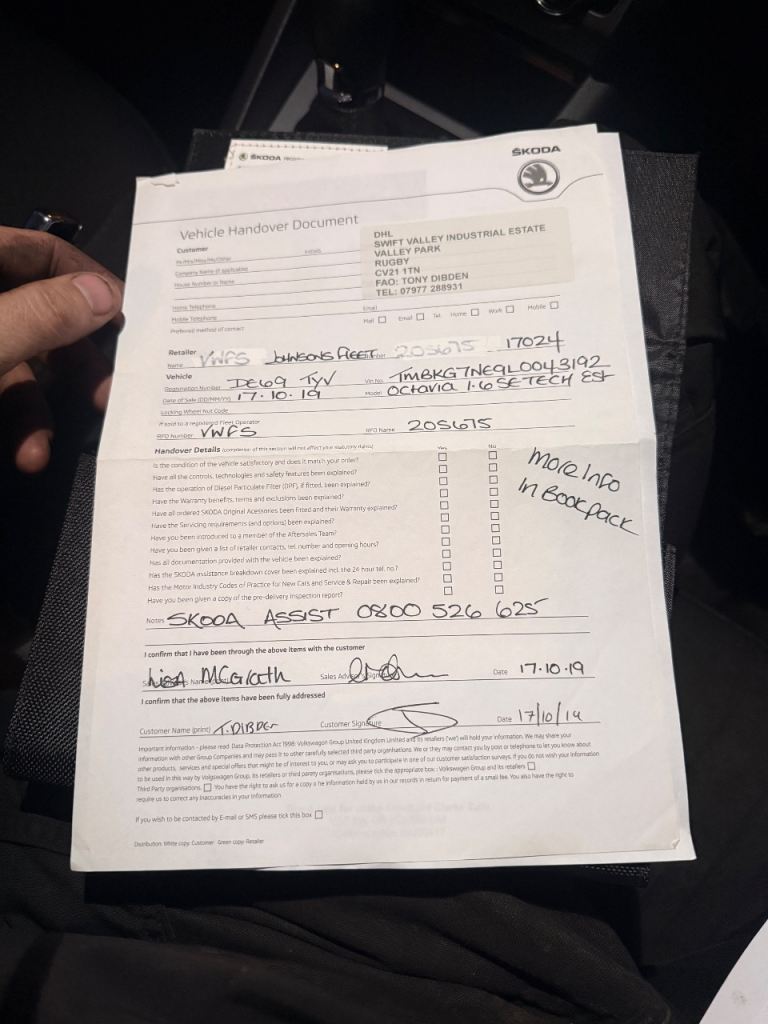 ŠKODA
ŠKODA
Vehicle Handover Document
Customer
DHL
SWIFT VALLEY INDUSTRIAL ESTATE
VALLEY PARK
RUGBY
CV21 1TN
FAO: TONY DIBDEN
TEL: 07977 288931
Company Name (if applicable)
House Number or Name
Home Telephone
Mobile Telephone
Email
Preferred method of contact
Mail Email Tel: Home Work Mobile
Retailer
Name VWFS JOHNSONS FLEET 205675 17024
Vehicle
Registration Number DE69 TYV Vin No. TMBKG7NE9L0043192
Date of Sale (DD/MM/YY) 17.10.19 Model OCTAVIA 1.6 SE TECH Est
Locking Wheel Nut Code
If sold to a registered Fleet Operator
RFO Number VWFS RFO Name 205675
Handover Details (completion of this section will not affect your statutory rights) Yes No
Is the condition of the vehicle satisfactory and does it match your order?
Have all the controls, technologies and safety features been explained?
Has the operation of Diesel Particulate Filter (DPF), if fitted, been explained?
Have the Warranty benefits, terms and exclusions been explained?
Have all ordered ŠKODA Original Acessories been fitted and their Warranty explained?
Have the Servicing requirements (and options) been explained?
Have you been introduced to a member of the Aftersales Team?
Have you been given a list of retailer contacts, tel. number and opening hours?
Has all documentation provided with the vehicle been explained?
Has the SKODA assistance breakdown cover been explained incl. the 24 hour tel. no?
Has the Motor Industry Codes of Practice for New Cars and Service & Repair been explained?
Have you been given a copy of the pre-delivery inspection report?
More Info
In Bookpack
Notes SKODA ASSIST 0800 526 625
I confirm that I have been through the above items with the customer
Lisa McGrath Sales Advisor Signature Date 17.10.19
I confirm that the above items have been fully addressed
Customer Name (print) T. DIBDEN Customer Signature Date 17/10/19
Important information - please read. Data Protection Act 1998: Volkswagen Group United Kingdom Limited and its retailers ('we') will hold your information. We may share your
information with other Group Companies and may pass it to other carefully selected third party organisations. We or they may contact you by post or telephone to let you know about
other products, services and special offers that might be of interest to you, or may ask you to participate in one of our customer satisfaction surveys. If you do not wish your information
to be used in this way by Volkswagen Group, its retailers or third parety organisations, please tick the appropriate box : Volkswagen Group and its retailers
Third Party organisations. You have the right to ask us for a copy o he information held by us in our records in return for payment of a small fee. You also have the right to
require us to correct any inaccuracies in your information
If you wish to be contacted by E-mail or SMS please tick this box
Distribution: White copy: Customer Green copy: Retailer